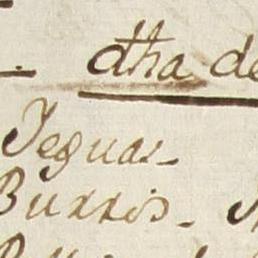 dha de
Yeguas_
Burros_